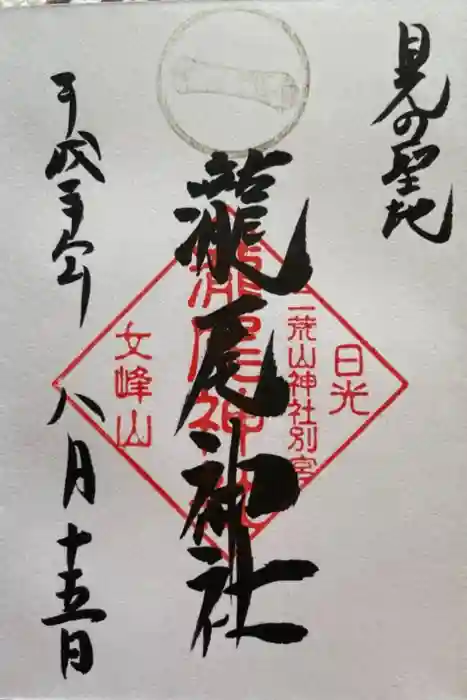 見の聖地
日光
二荒山神社別宮
瀧尾神社
瀧尾神社
女峰山
八月十五日